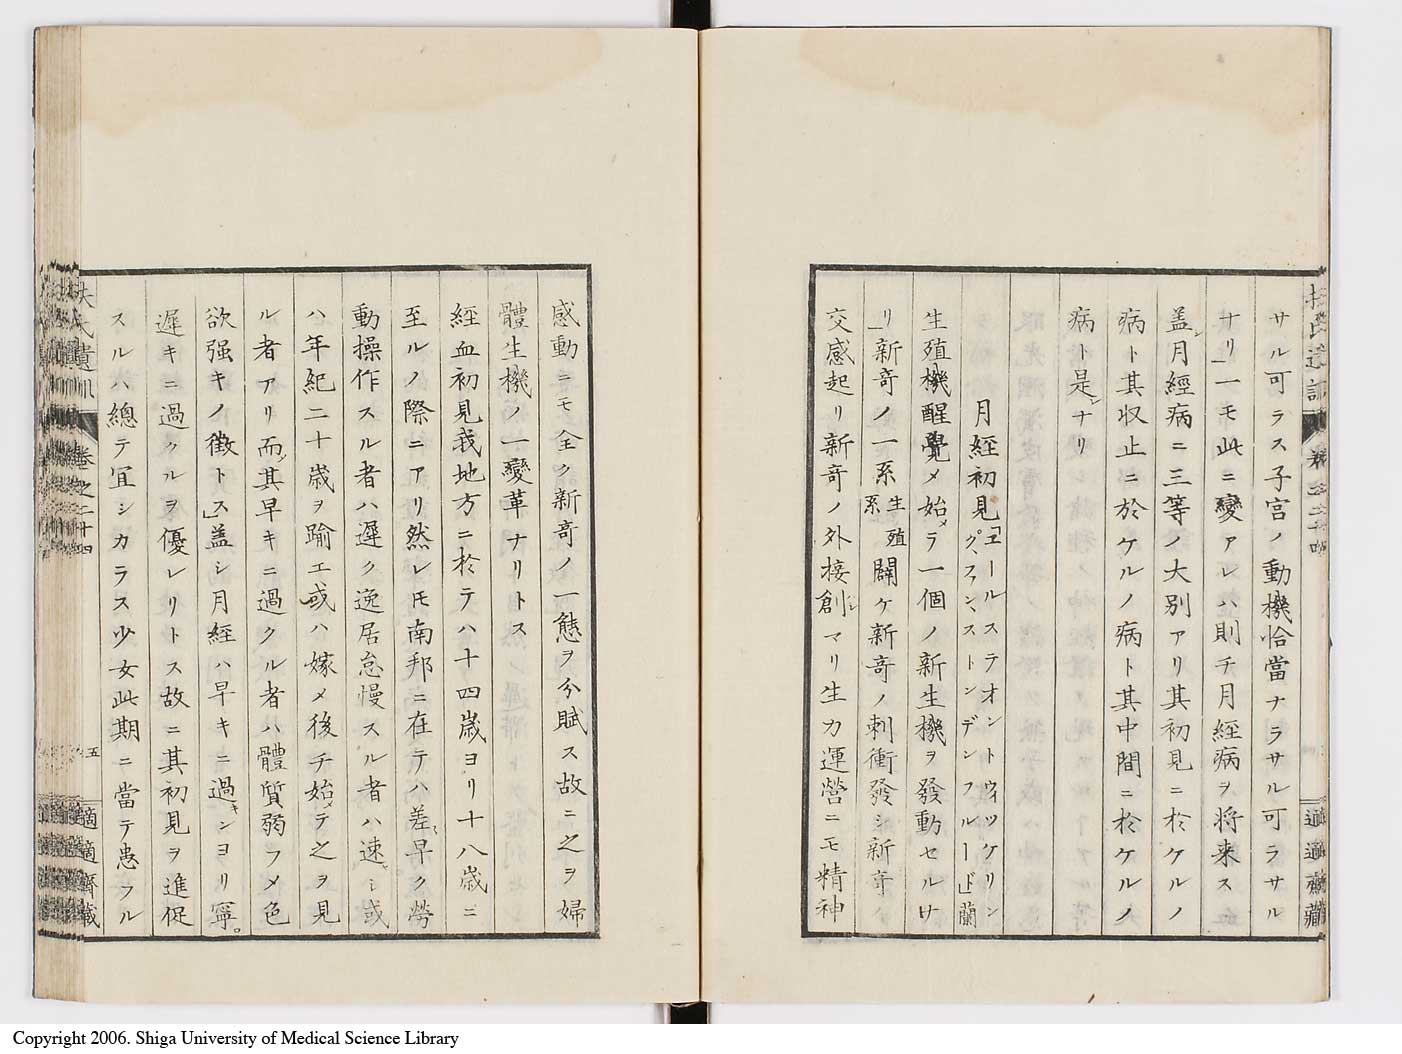 サル可ラス子宮ノ動機恰當ナラサル可ラサル
ナリ」一モ此ニ變アレハ則チ月經病ヲ将来ス
盖シ月經病ニ三等ノ大別アリ其初見ニ於ケルノ
病ト其収止ニ於ケルノ病ト其中間ニ於ケルノ
病ト是ナリ
月經初見「エールステオントウィッケリン
グ、ファン、ストンデンフルード」蘭
生殖機醒覺メ始メラ一個ノ新生機ヲ發動セルナ
リ」新奇ノ一系生殖系闢ケ新奇ノ刺衝發シ新奇ノ
交感起リ新奇ノ外接創マリ生力運營ニモ精神
感動ニモ全ク新奇ノ一態ヲ分賦ス故ニ之ヲ婦
體生機ノ一變革ナリトス
經血初見我地方ニ於テハ十四歳ヨリ十八歳ニ
至ルノ際ニアリ然レモ南邦ニ在テハ差早ク勞
動操作スル者ハ遲ク逸居怠慢スル者ハ速シ或
ハ年紀二十歳ヲ踰エ或ハ嫁メ後チ始メテ之ヲ見
ル者アリ而其早キニ過クル者ハ體質弱フメ色
欲强キノ徴トス」盖シ月經ハ早キニ過キンヨリ寧
遲キニ過クルヲ優レリトス故ニ其初見ヲ進促
スルハ總テ冝シカラス少女此期ニ當テ患フル
扶氏遺訓
卷之二十四
五
適適齋藏
Copyright 2006. Shiga University of Medical Science Library